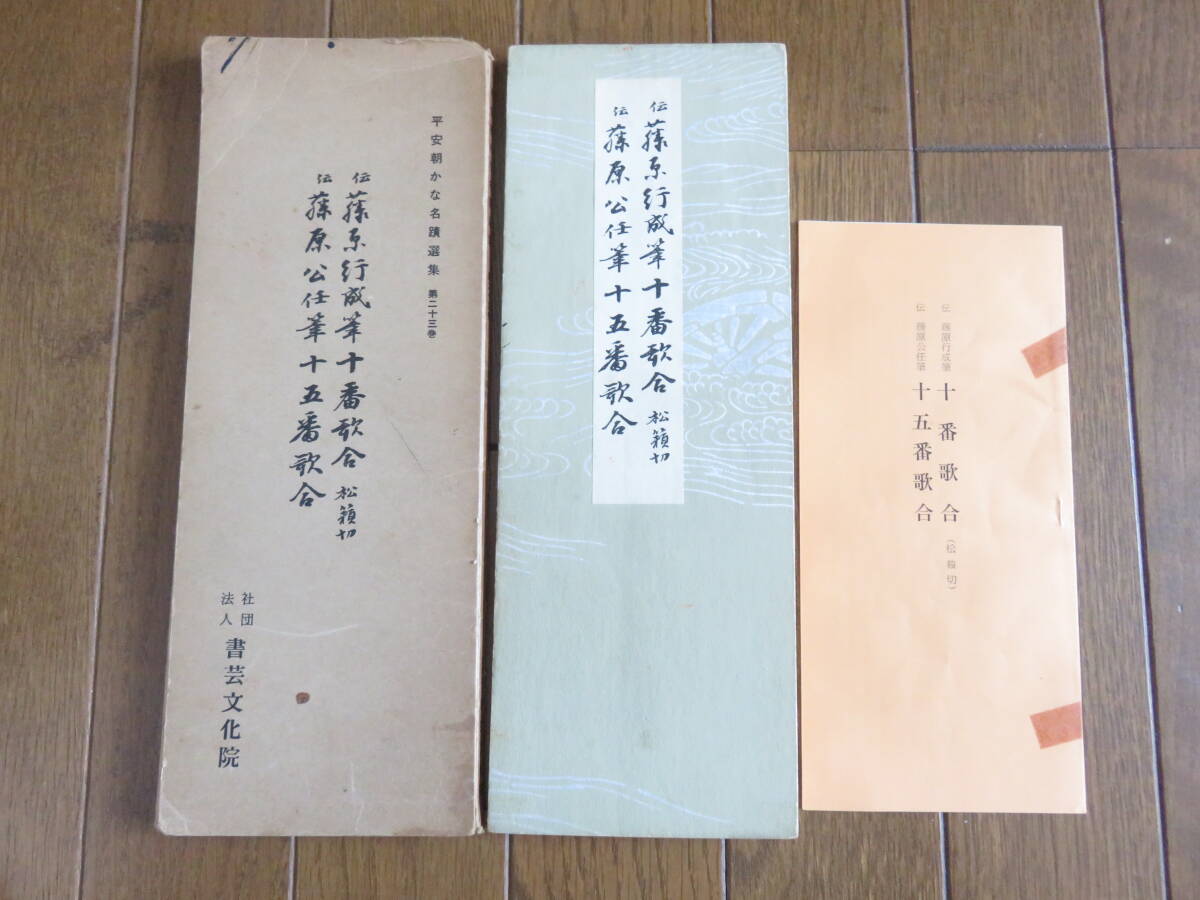 平安朝かな名蹟選集 第二十三巻
伝 藤原行成筆十番歌合 松籟切
伝 藤原公任筆十五番歌合
社団
法人
書芸文化院
伝 藤原行成筆十番歌合 松籟切
伝 藤原公任筆十五番歌合
伝 藤原行成筆 十番歌合 (松籟切)
伝 藤原公任筆 十五番歌合